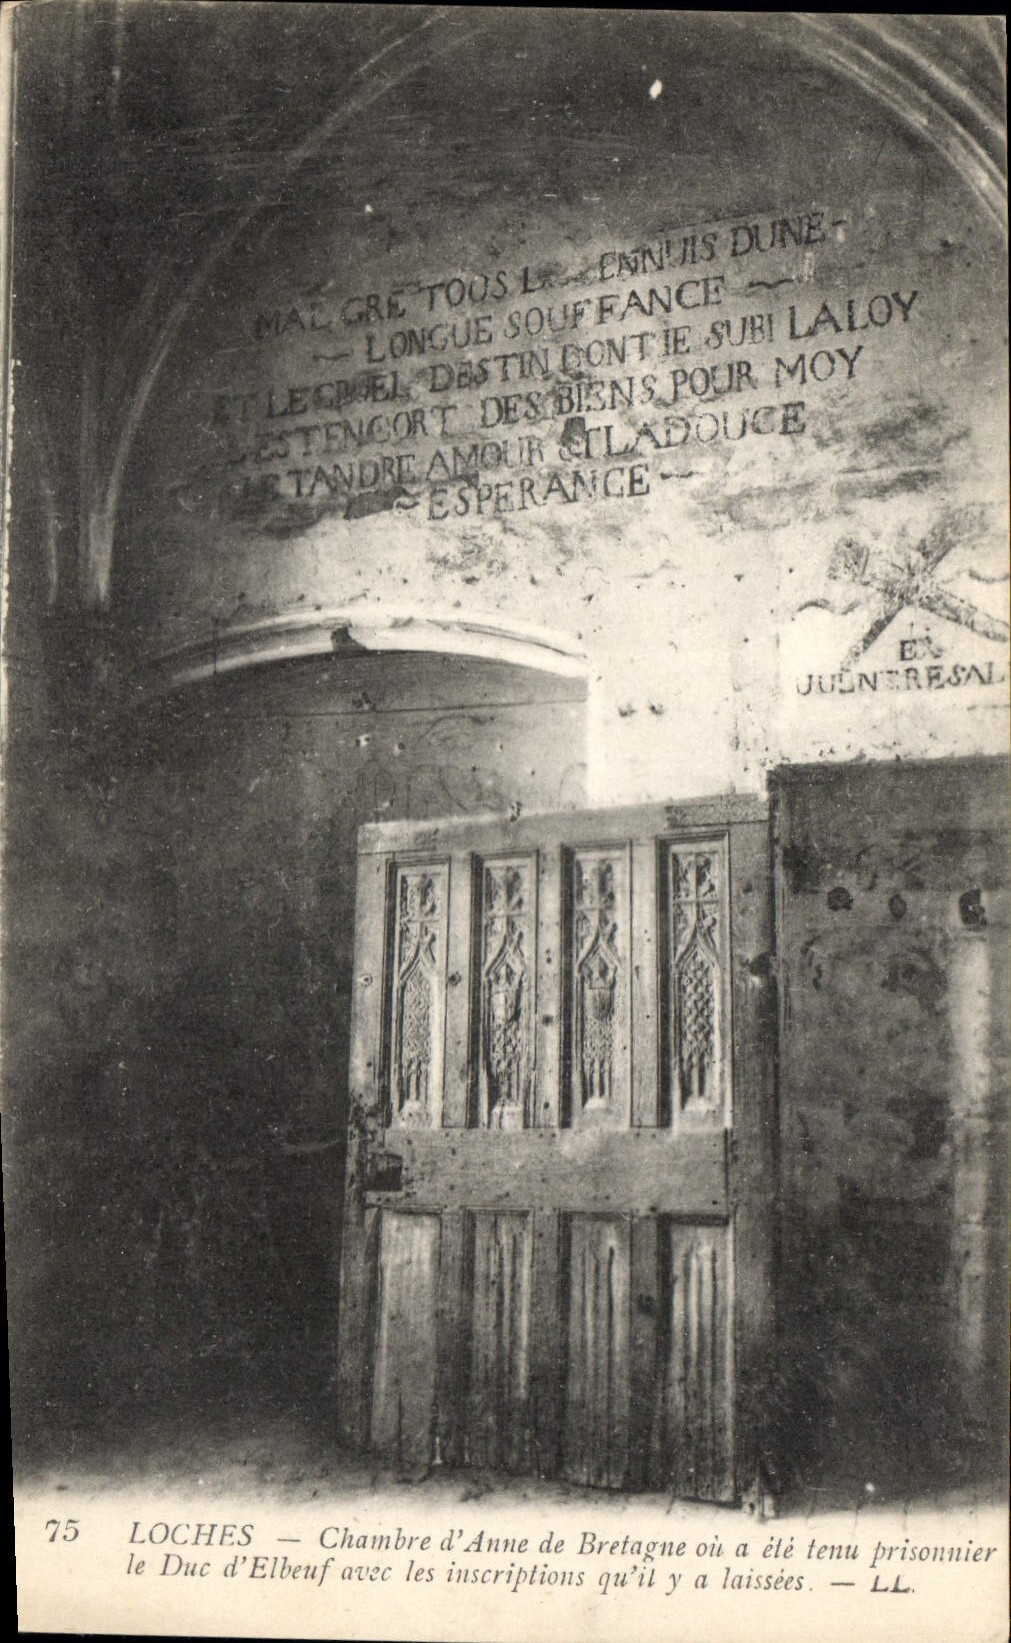 MAL GRE TOUS L ENNUIS DUNE-
~ LONGUE SOUFFANCE ~
ET LE CRUEL DESTIN DONT IE SUBI LALOY
ESTENCORT DES BIENS POUR MOY
LE TANDRE AMOUR & LADOUCE
~ ESPERANCE ~
EX
75 LOCHES — Chambre d'Anne de Bretagne où a été tenu prisonnier
le Duc d'Elbeuf avec les inscriptions qu'il y a laissées. — LL.